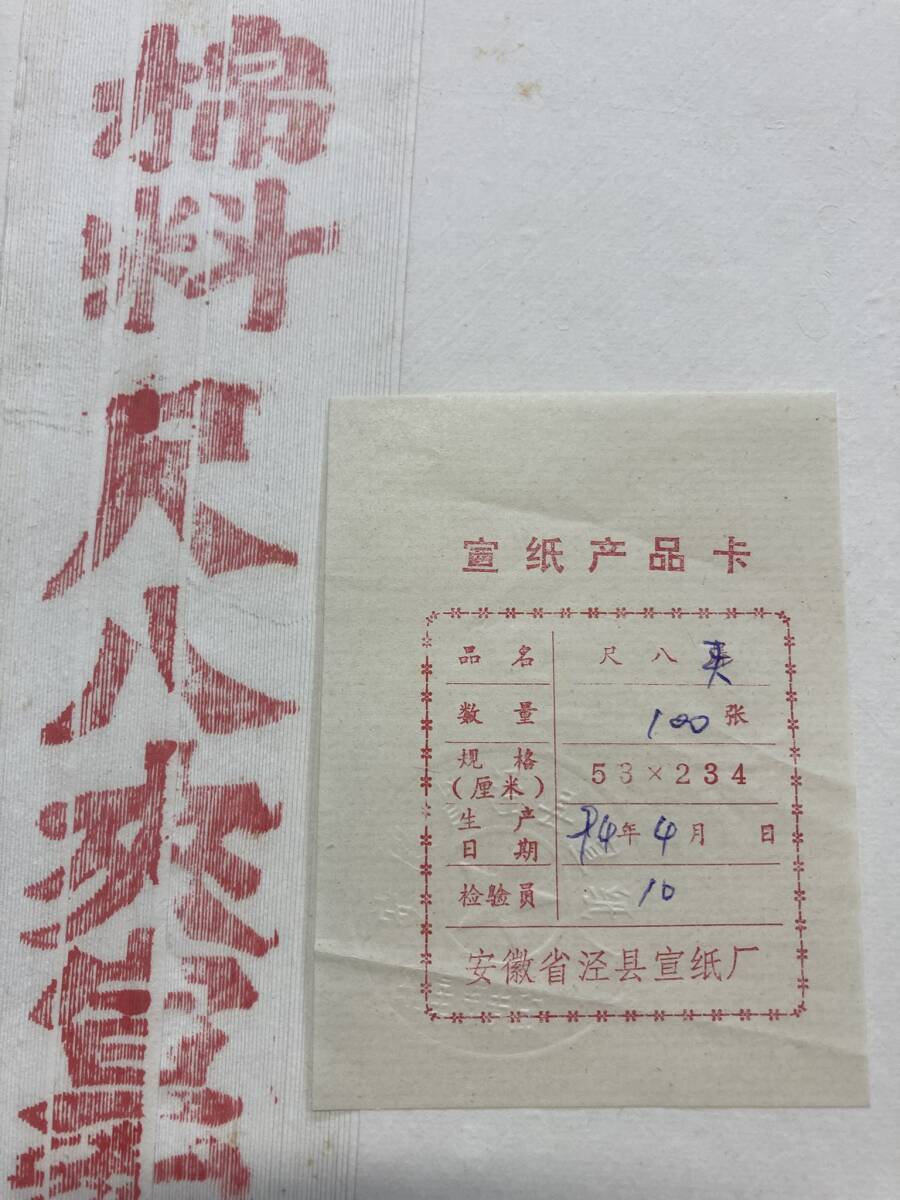 棉料
尺八夹
宣纸产品卡
品名 尺八夹
数量 100张
规格(厘米) 53×234
生产日期 94年4月 日
检验员 10
安徽省泾县宣纸厂